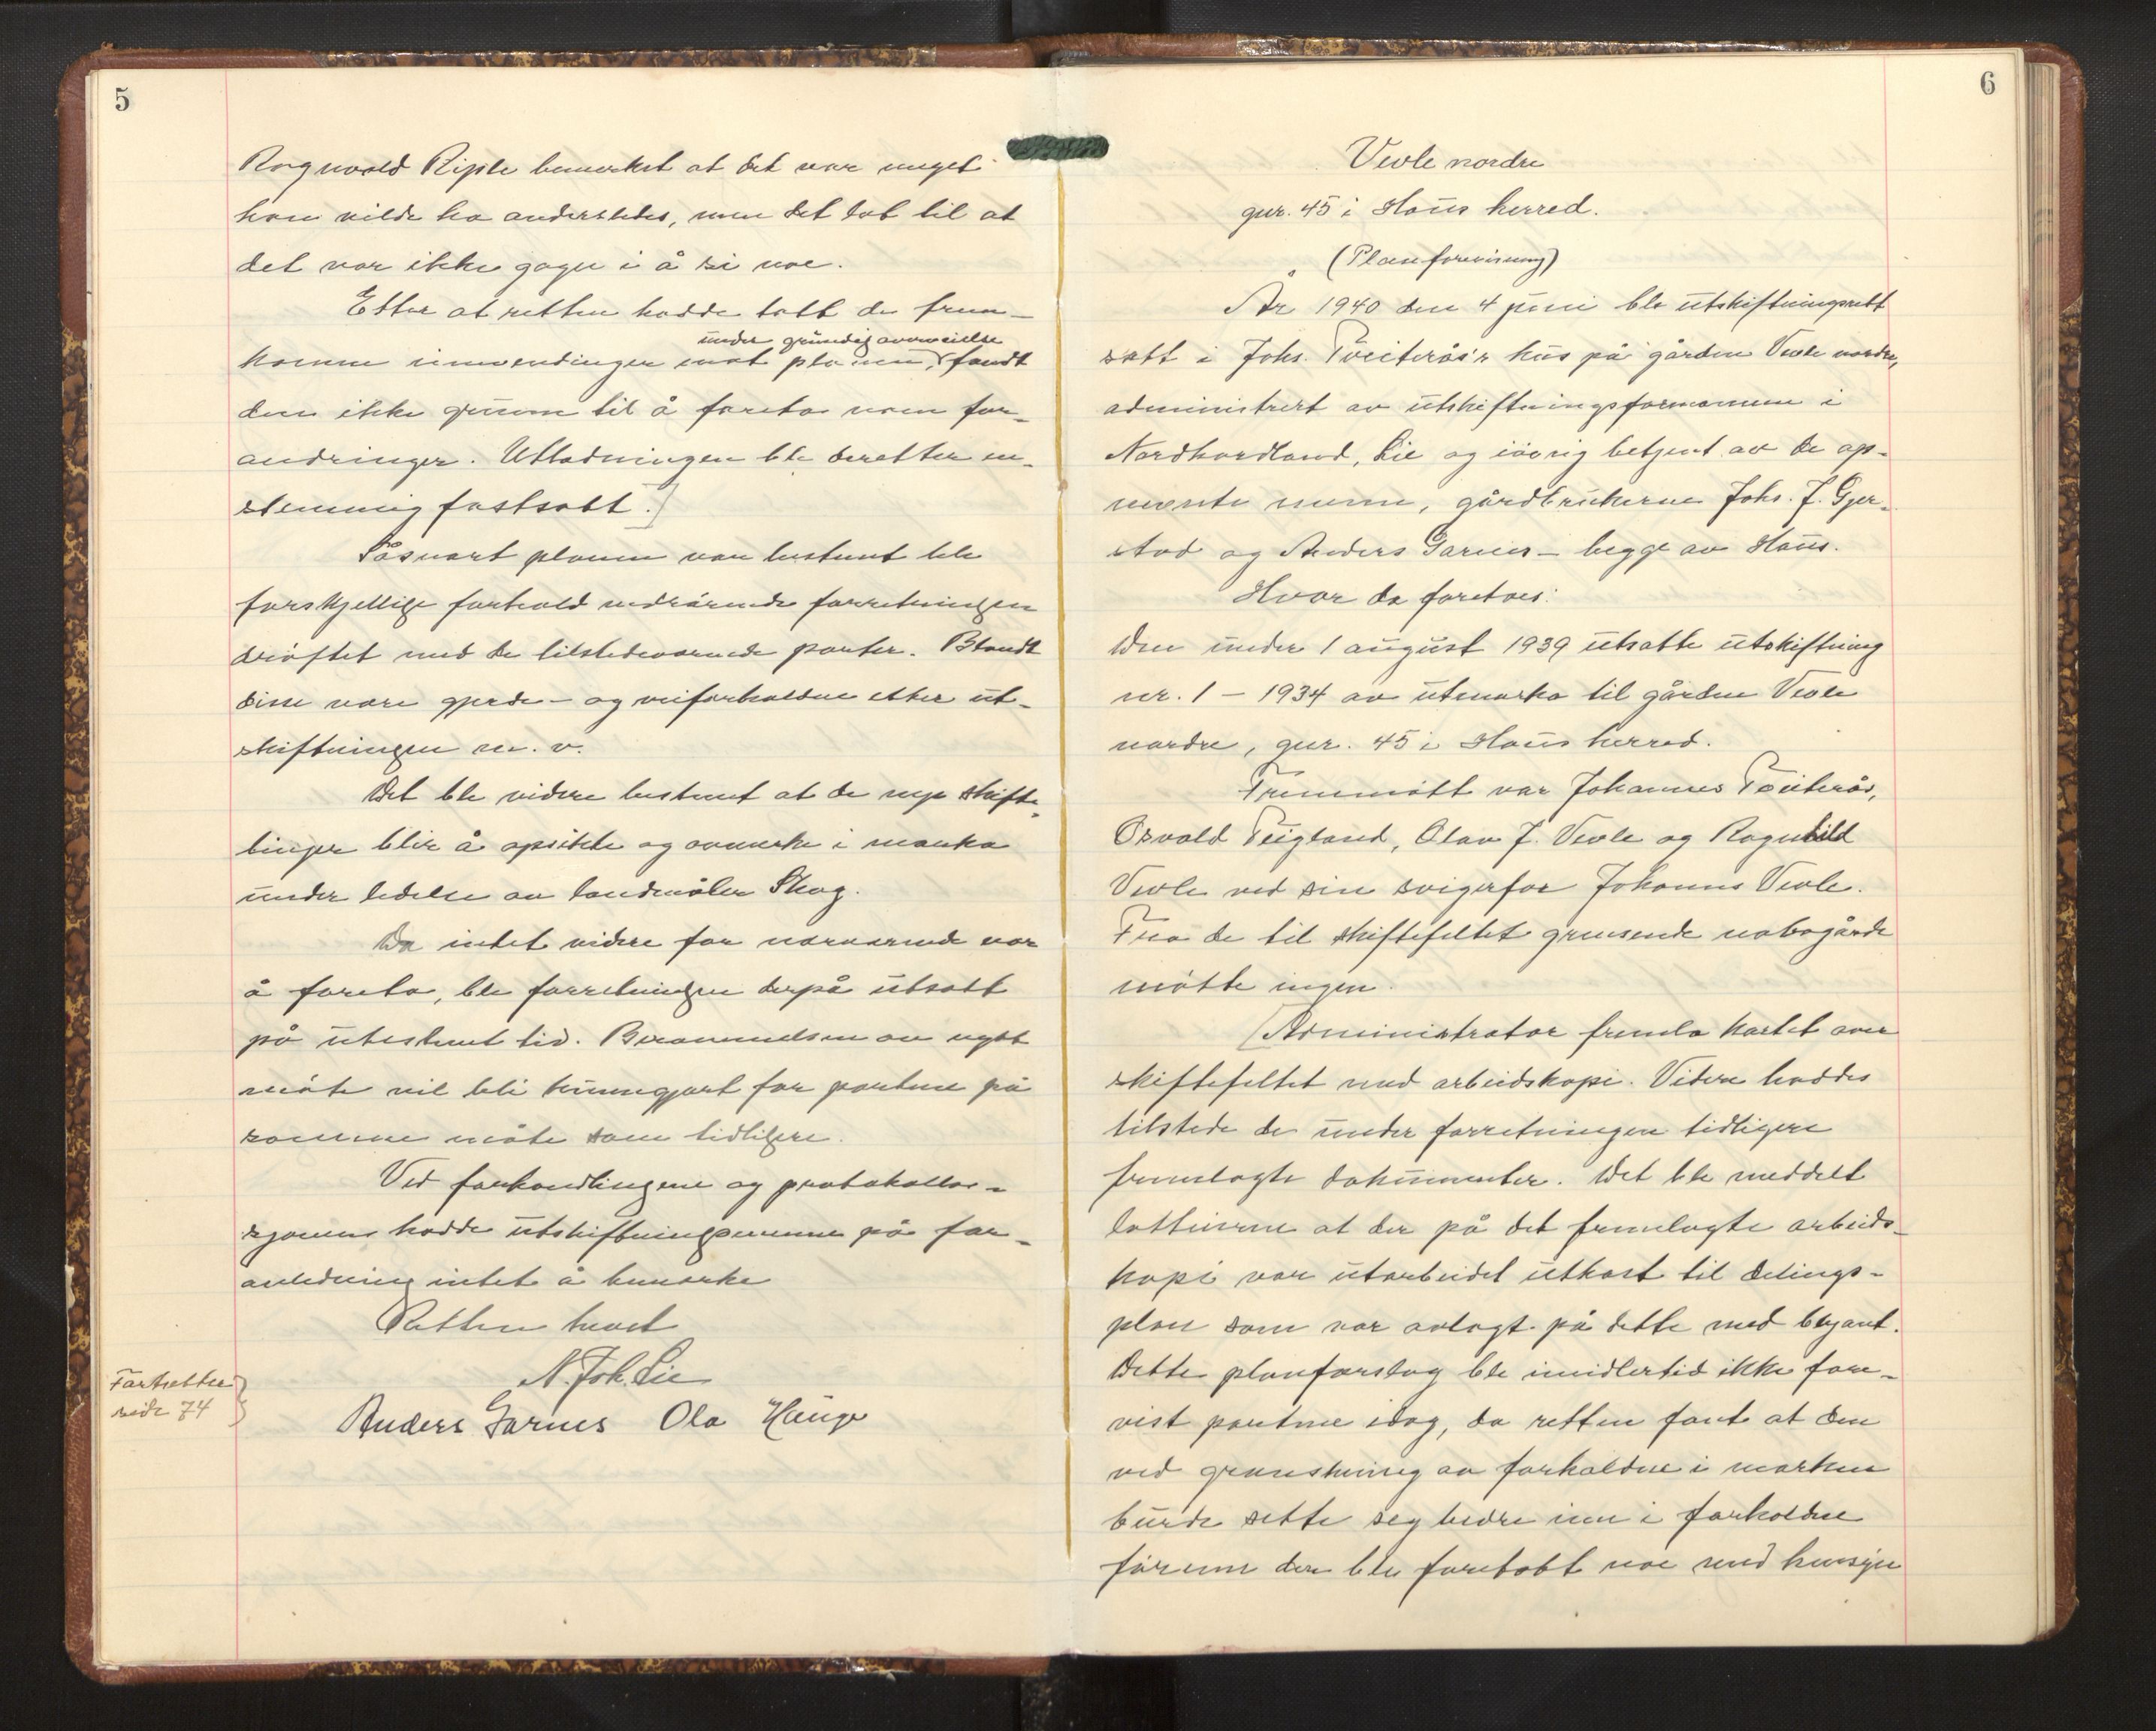 5
Ragnvald Riple bemerket at det var meget
han vilde ha anderledes, men det lot til at
det var ikke gagn i å si noe.
Etter at retten hadde tatt de frem-
under grundig overveielse
komne innvendinger mot planen, fandt
den ikke grunn til å foreta noen for-
andringer. Utlodningen ble deretter en-
stemmig fastsatt.]
Såsnart planen var bestemt ble
forskjellige forhold vedrørende forretningen
drøftet med de tilstedeværende parter. Blandt
disse vare gjerde- og veiforholdene etter ut-
skiftningen m. v.
Det ble videre bestemt at de nye skifte-
linjer blir å opstikke og avmerke i marka
under ledelse av landmåler Skog.
Da intet videre for nærværende var
å foreta, ble forretningen derpå utsatt
på ubestemt tid. Berammelsen av nytt
møte vil bli kunngjort for partene på
samme måte som tidligere.
Ved forhandlingene og protokolla-
sjonens hadde utskiftningsmennene på for-
anledning intet å bemerke
Retten hevet
N. Joh. Lie
Fortsetter
side 74
Anders Garnes Ola Hauge
6
Vevle nordre
gnr. 45 i Haus herred.
(Planforevisning)
År 1940 den 4 juni ble utskiftningsrett
satt i Johs. Tveiterås's hus på gården Vevle nordre,
administrert av utskiftningsformannen i
Nordhordland, Lie og iøvrig betjent av de op-
nevnte menn, gårdbrukerne Johs. J. Gjer-
stad og Anders Garnes - begge av Haus.
Hvor da foretoes:
Den under 1 august 1939 utsatte utskiftning
nr. 1 - 1934 av utmarka til gården Vevle
nordre, gnr. 45 i Haus herred.
Fremmøtt var Johannes Tveiterås,
Osvald Teigland, Olav J. Vevle og Ragnhild
Vevle ved sin svigerfar Johannes Vevle.
Fra de til skiftefeltet grensende nabogårde
møtte ingen.
[Administrator fremla kartet over
skiftefeltet med arbeidskopi. Videre haddes
tilstede de under forretningen tidligere
fremlagte dokumenter. Det ble meddelt
lotteierne at der på det fremlagte arbeids-
kopi var utarbeidet utkast til delings-
plan som var avlagt på dette med blyant.
Dette planforslag ble imidlertid ikke fore-
vist partene idag, da retten fant at den
ved granskning av forholdene i marken
burde sette seg bedre inn i forholdene
førenn der ble foretatt noe med hensyn